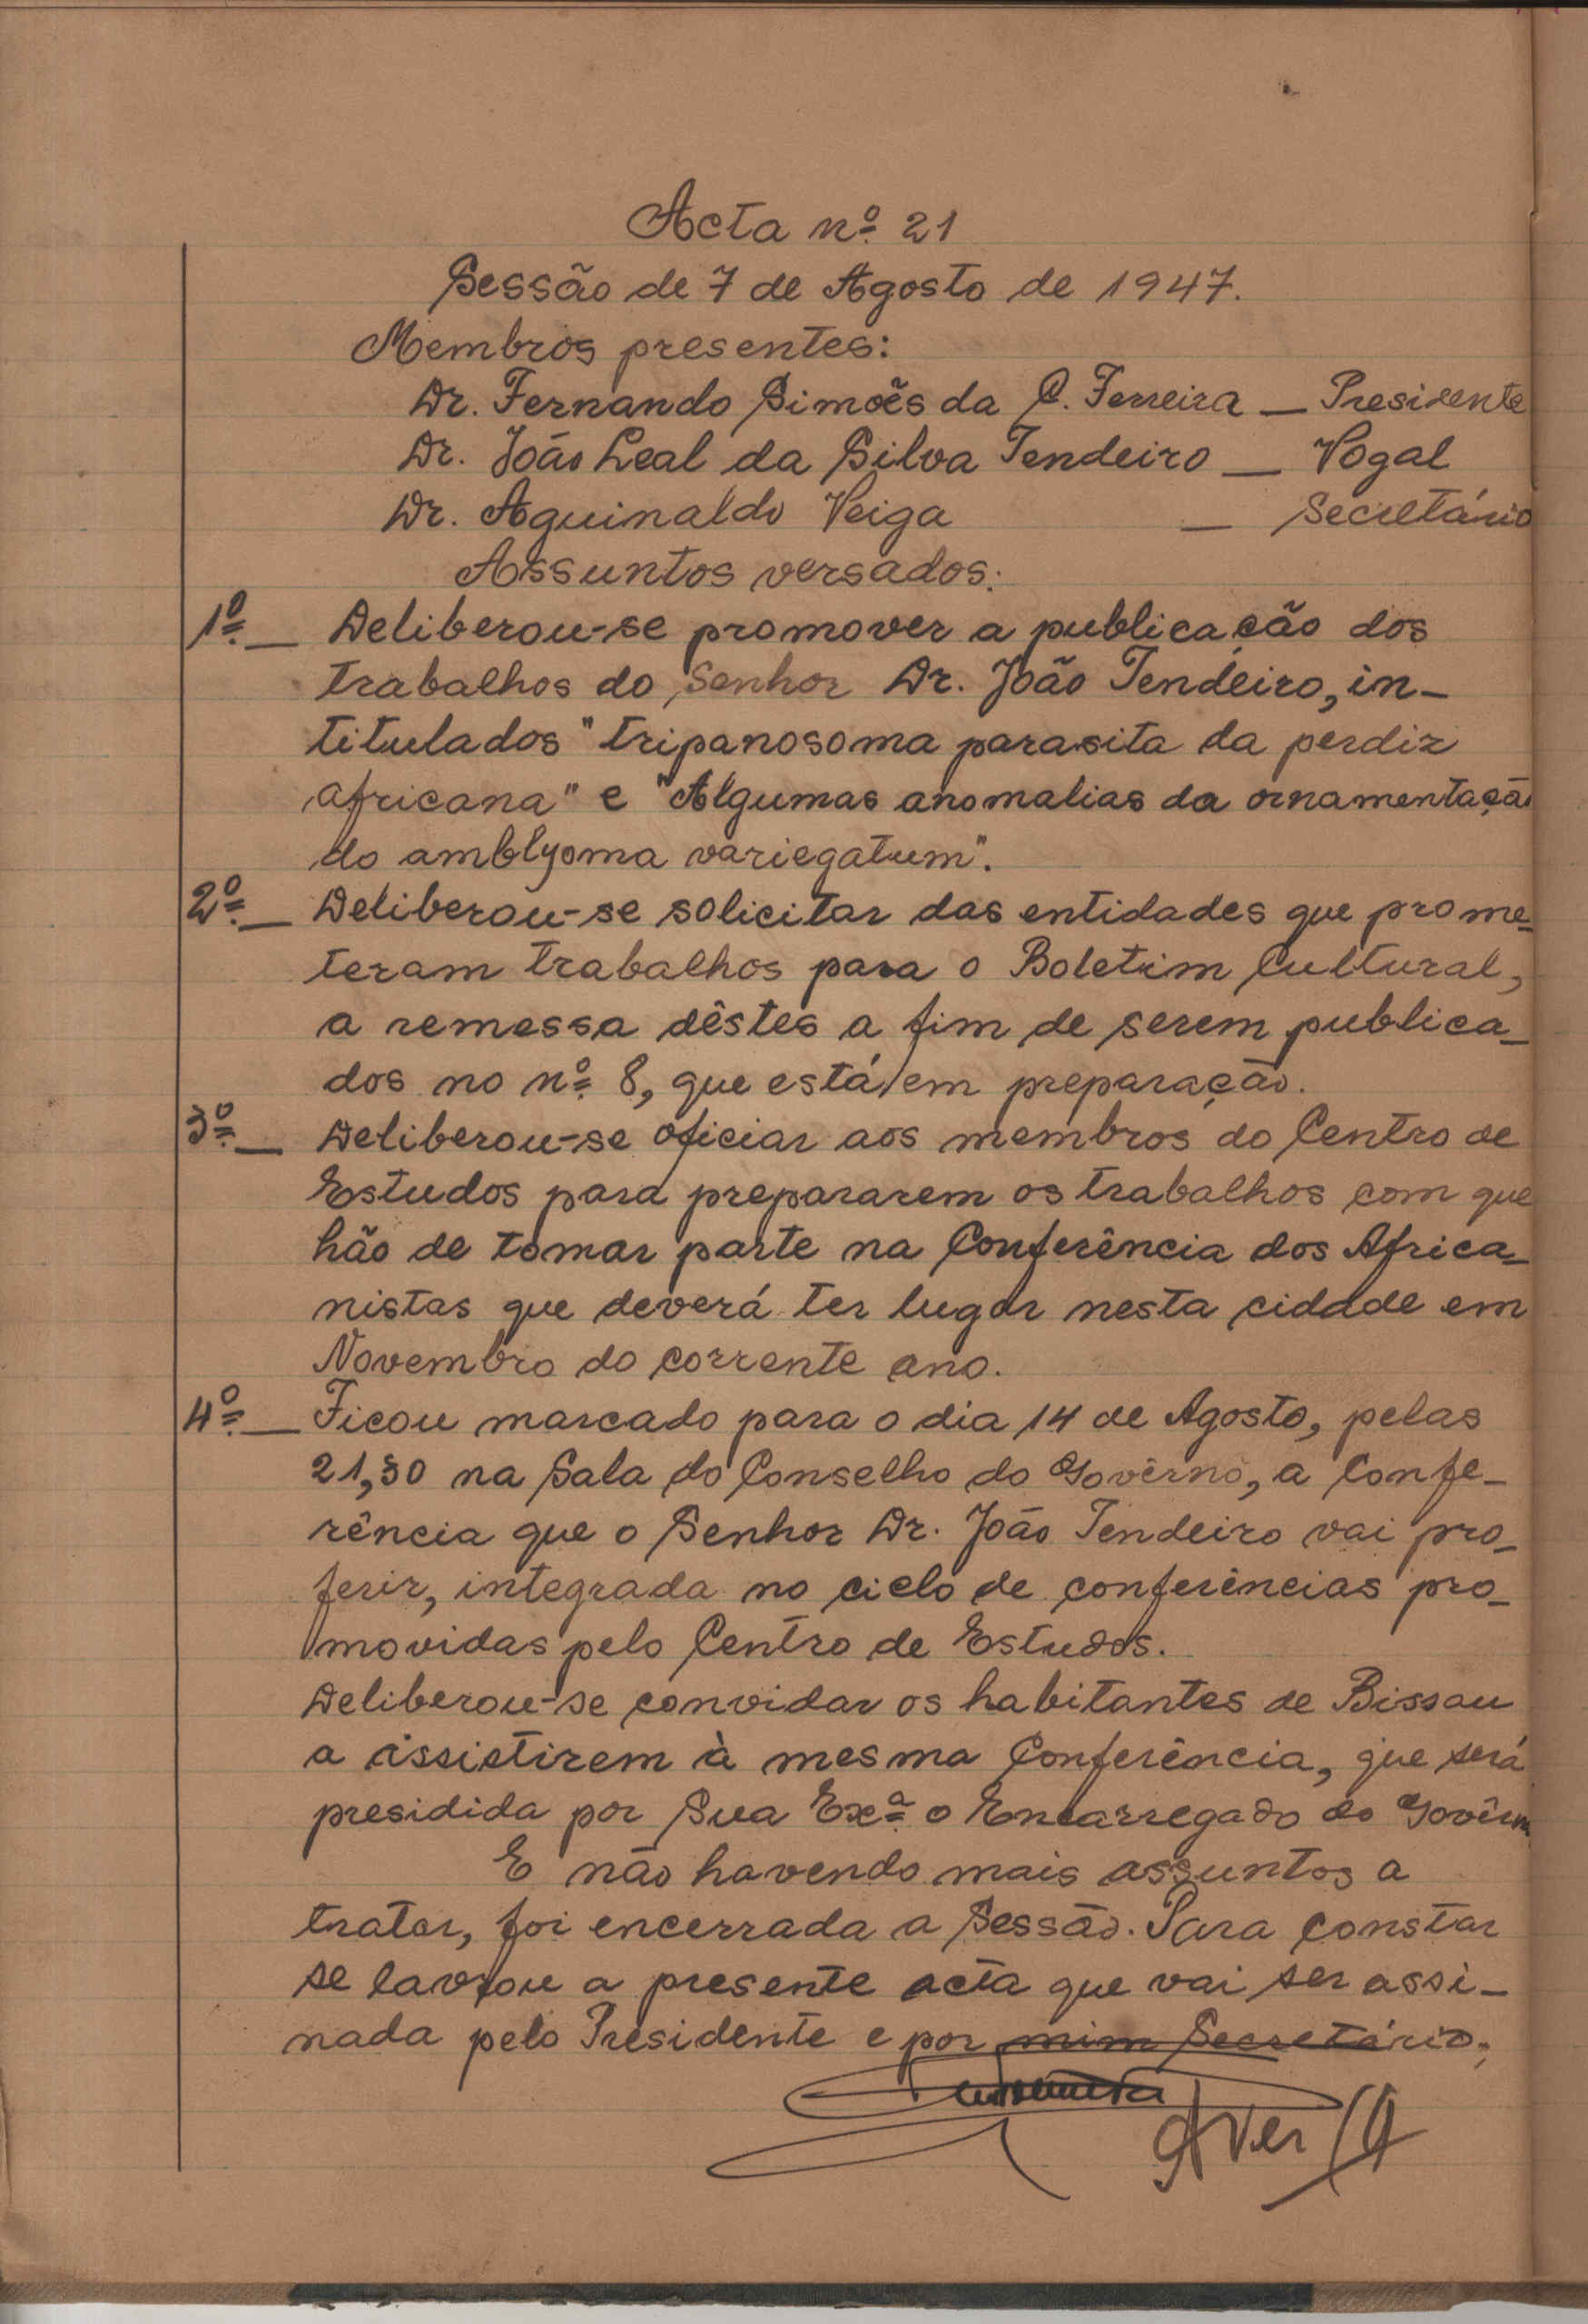 Acta nº 21
Sessão de 7 de Agosto de 1947.
Membros presentes:
Dr. Fernando Simões da C. Ferreira — Presidente
Dr. João Leal da Silva Tendeiro — Vogal
Dr. Aguinaldo Veiga — Secretário
Assuntos versados:
1º — Deliberou-se promover a publicação dos
trabalhos do Senhor Dr. João Tendeiro, in-
titulados "tripanosoma parasita da perdiz
africana" e "Algumas anomalias da ornamentação
do amblyoma variegatum".
2º — Deliberou-se solicitar das entidades que prome-
teram trabalhos para o Boletim Cultural,
a remessa dêstes a fim de serem publica-
dos no nº 8, que está em preparação.
3º — Deliberou-se oficiar aos membros do Centro de
Estudos para prepararem os trabalhos com que
hão de tomar parte na Conferência dos Africa-
nistas que deverá ter lugar nesta cidade em
Novembro do corrente ano.
4º — Ficou marcado para o dia 14 de Agosto, pelas
21,30 na Sala do Conselho do Govêrno, a Confe-
rência que o Senhor Dr. João Tendeiro vai pro-
ferir, integrada no ciclo de conferências pro-
movidas pelo Centro de Estudos.
Deliberou-se convidar os habitantes de Bissau
a assistirem à mesma Conferência, que será
presidida por Sua Exª o Encarregado do Govêrno
E não havendo mais assuntos a
tratar, foi encerrada a Sessão. Para constar
se lavrou a presente acta que vai ser assi-
nada pelo Presidente e por mim Secretário,